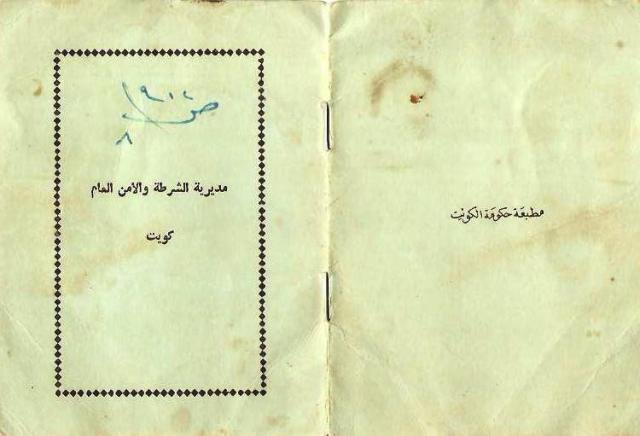 ص ٩١٢
٨
مديرية الشرطة والامن العام
كويت
مطبعة حكومة الكويت